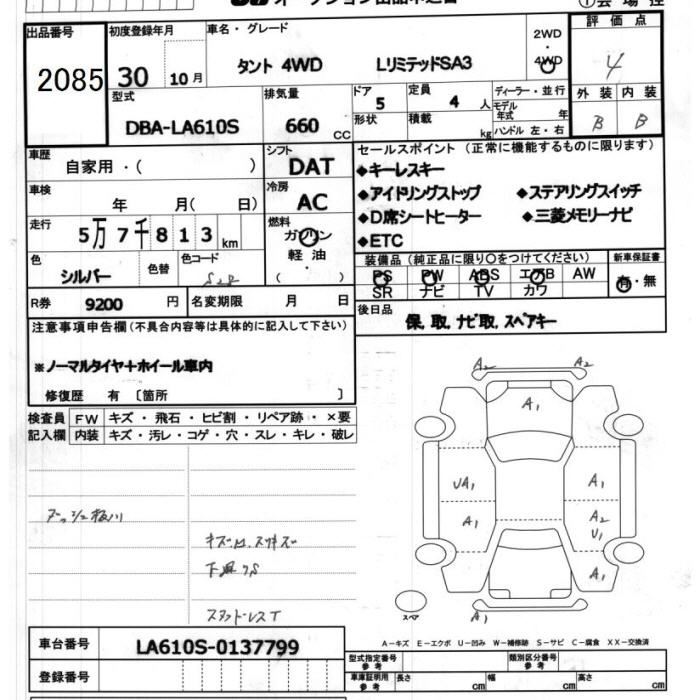 オークション出品申込書
①会場控
出品番号
2085
初度登録年月
30 10月
車名・グレード
タント 4WD LリミテッドSA3
2WD
4WD
評価点
4
型式
DBA-LA610S
排気量
660 CC
ドア
5
形状
定員
4 人
積載 kg
ディーラー・並行
モデル年式 年
ハンドル 左・右
外装 内装
B B
車歴
自家用・( )
シフト
DAT
車検
年 月( 日)
冷房
AC
走行
5万7千813km
燃料
ガソリン
軽油
( )
色
シルバー
色替
色コード
S28
R券
9200 円
名変期限 月 日
セールスポイント (正常に機能するものに限ります)
◆キーレスキー
◆アイドリングストップ ◆ステアリングスイッチ
◆D席シートヒーター ◆三菱メモリーナビ
◆ETC
装備品 (純正品に限り○をつけてください)
PS PW ABS エアB AW
SR ナビ TV カワ
新車保証書
有・無
後日品
保, 取, ナビ取, スペアキー
注意事項申告欄(不具合内容等は具体的に記入して下さい)
※ノーマルタイヤ+ホイール車内
修復歴 有 〔箇所 〕
検査員記入欄
FW キズ・飛石・ヒビ割・リペア跡・×要
内装 キズ・汚レ・コゲ・穴・スレ・キレ・破レ
キズ凹, スリキズ
A2 A2
A1
UA1 A1
A1 A2
U1
A1
A1
スペア
A-キズ E-エクボ U-凹み W-補修跡 S-サビ C-腐食 XX-交換済
車台番号
LA610S-0137799
登録番号
型式指定番号参考
類別区分番号参考
車庫証明用参考
長さ cm
幅 cm
高さ cm